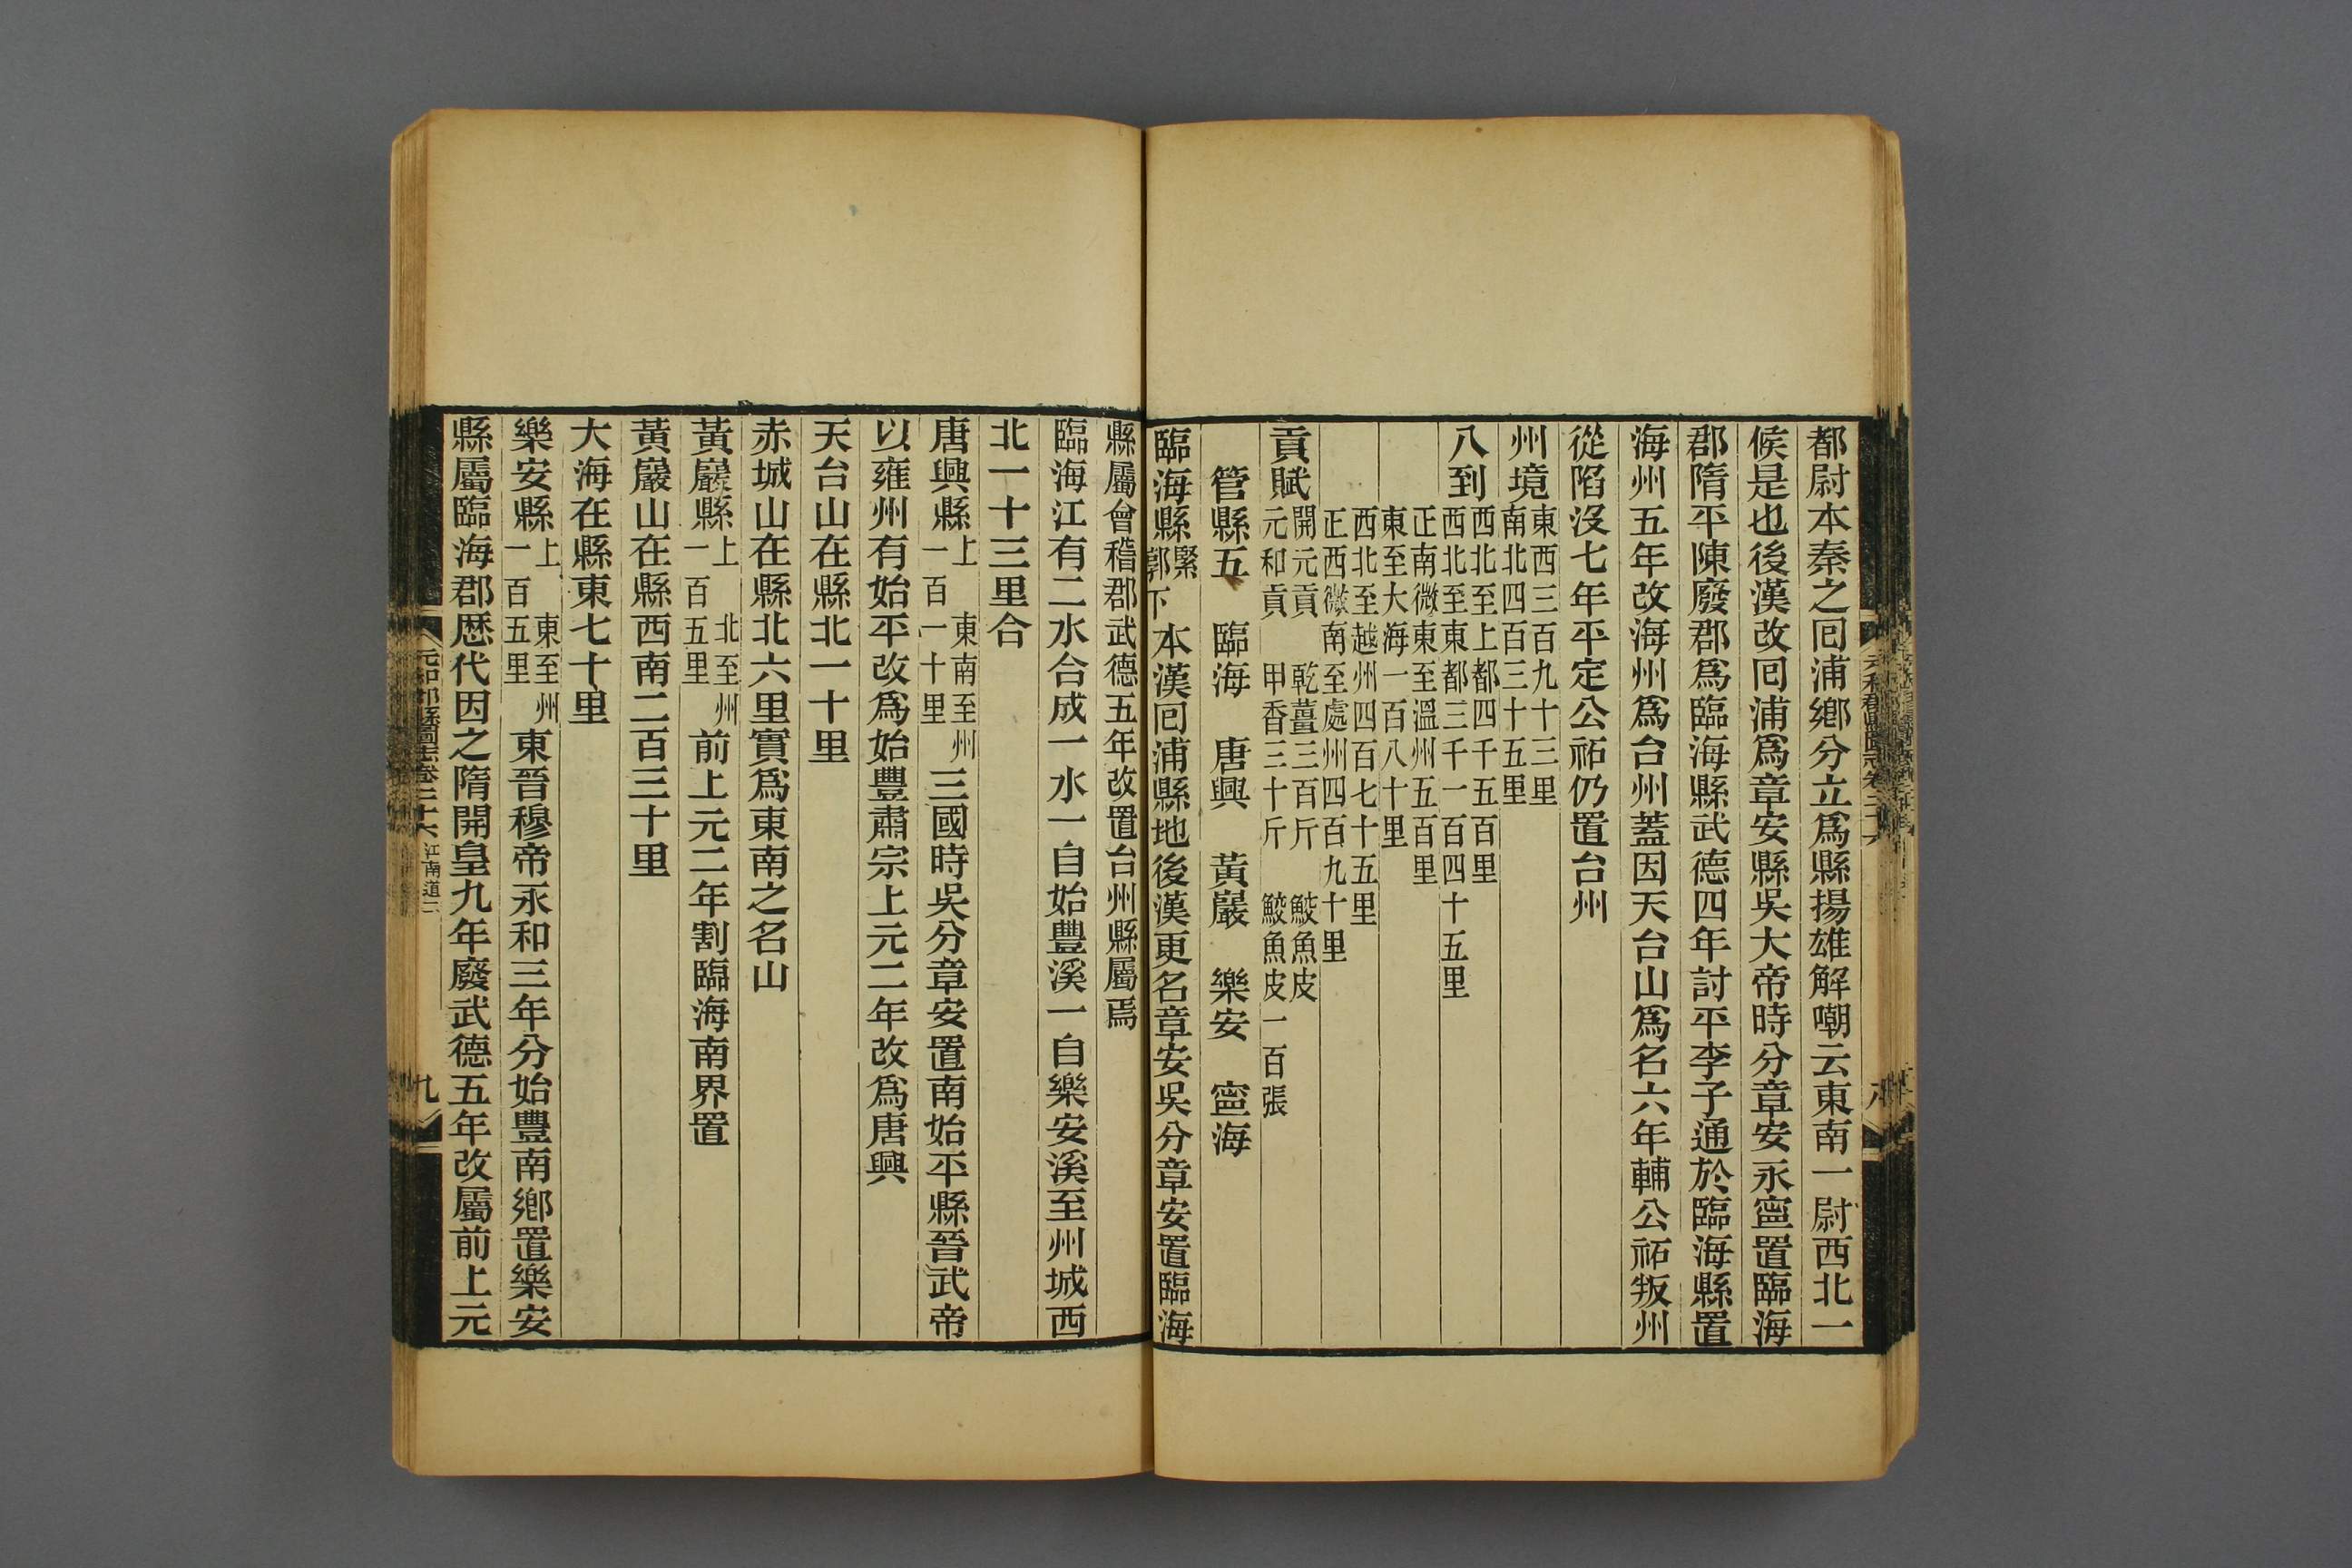 都尉本秦之囘浦鄉分立爲縣揚雄解嘲云東南一尉西北一
候是也後漢改囘浦爲章安縣吳大帝時分章安永寧置臨海
郡隋平陳廢郡爲臨海縣武德四年討平李子通於臨海縣置
海州五年改海州爲台州蓋因天台山爲名六年輔公祏叛州
從陷沒七年平定公祏仍置台州
州境東西三百九十三里
南北四百三十五里
八到西北至上都四千五百里
西北至東都三千一百四十五里
正南微東至溫州五百里
東至大海一百八十里
西北至越州四百七十五里
正西微南至處州四百九十里
貢賦開元貢 乾薑三百斤 鮫魚皮
元和貢 甲香三十斤 鮫魚皮一百張
管縣五 臨海 唐興 黃巖 樂安 寧海
臨海縣緊郭下 本漢囘浦縣地後漢更名章安吳分章安置臨海
縣屬會稽郡武德五年改置台州縣屬焉
臨海江有二水合成一水一自始豐溪一自樂安溪至州城西
北一十三里合
唐興縣上 東南至州一百一十里 三國時吳分章安置南始平縣晉武帝
以雍州有始平改爲始豐肅宗上元二年改爲唐興
天台山在縣北一十里
赤城山在縣北六里實爲東南之名山
黃巖縣上 北至州一百五里 前上元二年割臨海南界置
黃巖山在縣西南二百三十里
大海在縣東七十里
樂安縣上 東至州一百五里 東晉穆帝永和三年分始豐南鄉置樂安
縣屬臨海郡歷代因之隋開皇九年廢武德五年改屬前上元
元和郡縣圖志卷二十六 江南道二
九